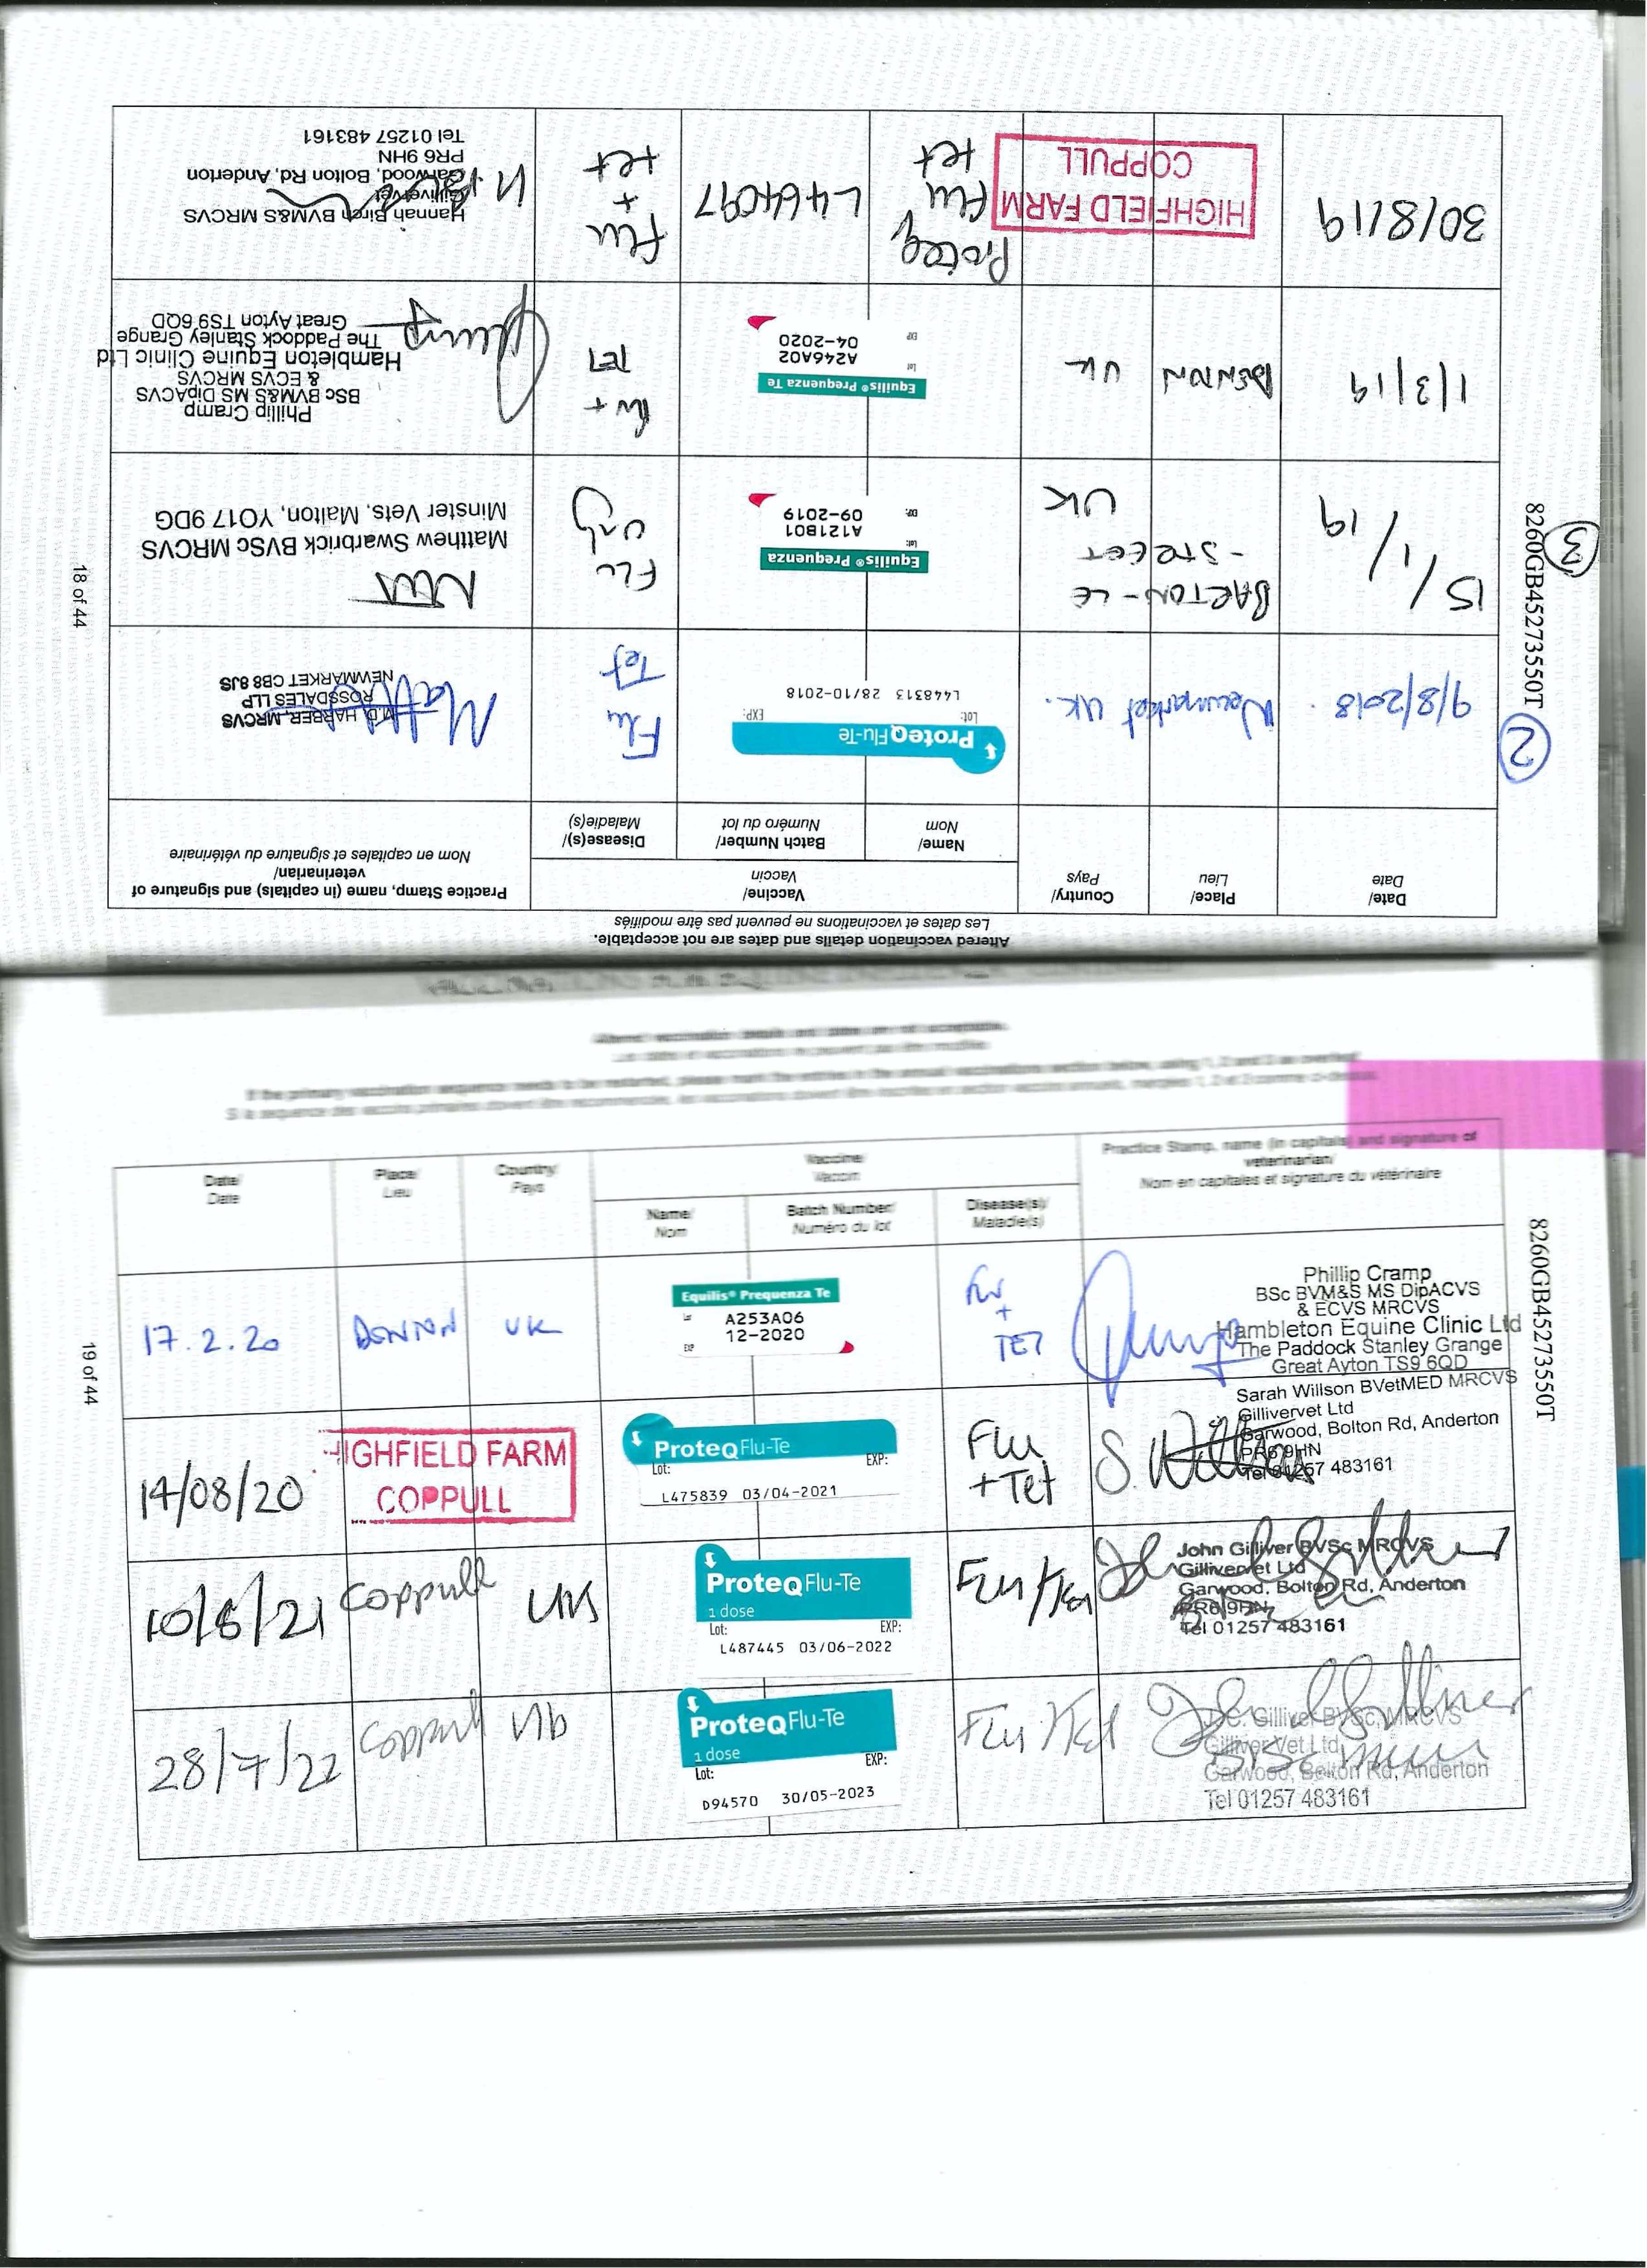 Altered vaccination details and dates are not acceptable.
Les dates et vaccinations ne peuvent pas être modifiés
Date/
Date
Place/
Lieu
Country/
Pays
Vaccine/
Vaccin
Name/
Nom
Batch Number/
Numéro du lot
Disease(s)/
Maladie(s)
Practice Stamp, name (in capitals) and signature of
veterinarian/
Nom en capitales et signature du vétérinaire
2
9/8/2018.
Newmarket
UK.
ProteqFlu-Te
Lot:
EXP:
L448313 28/10-2018
Flu
Tet
M.D. HARBER, MRCVS
ROSSDALES LLP
NEWMARKET CB8 8JS
3
15/1/19
BARTON-LE
-STREET
UK
Equilis® Prequenza
Lot:
A121B01
EXP:
09-2019
FLU
only
Matthew Swarbrick BVSc MRCVS
Minster Vets, Malton, YO17 9DG
1/3/19
UK
Equilis® Prequenza Te
Lot
A246A02
EXP
04-2020
TET
Phillip Cramp
BSc BVM&S MS DipACVS
& ECVS MRCVS
Hambleton Equine Clinic Ltd
The Paddock Stanley Grange
Great Ayton TS9 6QD
30/8/19
HIGHFIELD FARM
COPPULL
Proteq
Flu
tet
L464097
Flu
+
tet
Hannah Birch BVM&S MRCVS
Gillivervet
Garwood, Bolton Rd, Anderton
PR6 9HN
Tel 01257 483161
8260GB45273550T
18 of 44
Altered vaccination details and dates are not acceptable.
Les dates et vaccinations ne peuvent pas être modifiés
If the primary vaccination sequence needs to be restarted, please mark the entries in the annual vaccinations section below, using 1, 2 and 3 as overleaf
Date/
Date
Place/
Lieu
Country/
Pays
Vaccine/
Vaccin
Name/
Nom
Batch Number/
Numéro du lot
Disease(s)/
Maladie(s)
Practice Stamp, name (in capitals) and signature of
veterinarian/
Nom en capitales et signature du vétérinaire
17.2.20
UK
Equilis® Prequenza Te
A253A06
12-2020
EXP
+
TET
Phillip Cramp
BSc BVM&S MS DipACVS
& ECVS MRCVS
Hambleton Equine Clinic Ltd
The Paddock Stanley Grange
Great Ayton TS9 6QD
14/08/20
HIGHFIELD FARM
COPPULL
ProteqFlu-Te
Lot:
EXP:
L475839 03/04-2021
Flu
+Tet
Sarah Willson BVetMED MRCVS
Gillivervet Ltd
Garwood, Bolton Rd, Anderton
PR6 9HN
Tel 01257 483161
Coppull
ProteqFlu-Te
1 dose
Lot:
EXP:
L487445 03/06-2022
John Gilliver BVSc MRCVS
Gillivervet Ltd
Garwood, Bolton Rd, Anderton
PR6 9HN
Tel 01257 483161
28/7/22
Coppull
ProteqFlu-Te
1 dose
Lot:
EXP:
D94570 30/05-2023
J.C. Gilliver BVSc, MRCVS
Gilliver Vet Ltd
Garwood, Bolton Rd, Anderton
Tel 01257 483161
8260GB45273550T
19 of 44